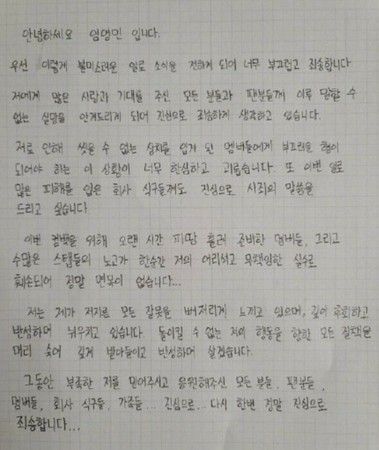 안녕하세요 임영민 입니다.
우선 이렇게 불미스러운 일로 소식을 전하게 되어 너무 부끄럽고 죄송합니다
저에게 많은 사랑과 기대를 주신 모든 분들과 팬분들께 이루 말할 수
없는 실망을 안겨드리게 되어 진심으로 죄송하게 생각하고 있습니다.
저로 인해 씻을 수 없는 상처를 입게 된 멤버들에게 부끄러운 형이
되어야 하는 이 상황이 너무 한심하고 괴롭습니다. 또 이번 일로
많은 피해를 입은 회사 식구들께도 진심으로 사죄의 말씀을
드리고 싶습니다.
이번 컴백을 위해 오랜 시간 피땀 흘려 준비한 멤버들, 그리고
수많은 스탭들의 노고가 한순간 저의 어리석고 무책임한 실수로
훼손되어 정말 면목이 없습니다...
저는 제가 저지른 모든 잘못을 뼈저리게 느끼고 있으며, 깊이 후회하고
반성하며 뉘우치고 있습니다. 돌이킬 수 없는 저의 행동을 향한 모든 질책을
머리 숙여 깊게 받아들이고 반성하며 살겠습니다.
그동안 부족한 저를 믿어주시고 응원해주신 모든 분들, 팬분들,
멤버들, 회사 식구들, 가족들... 진심으로... 다시 한번 정말 진심으로
죄송합니다...